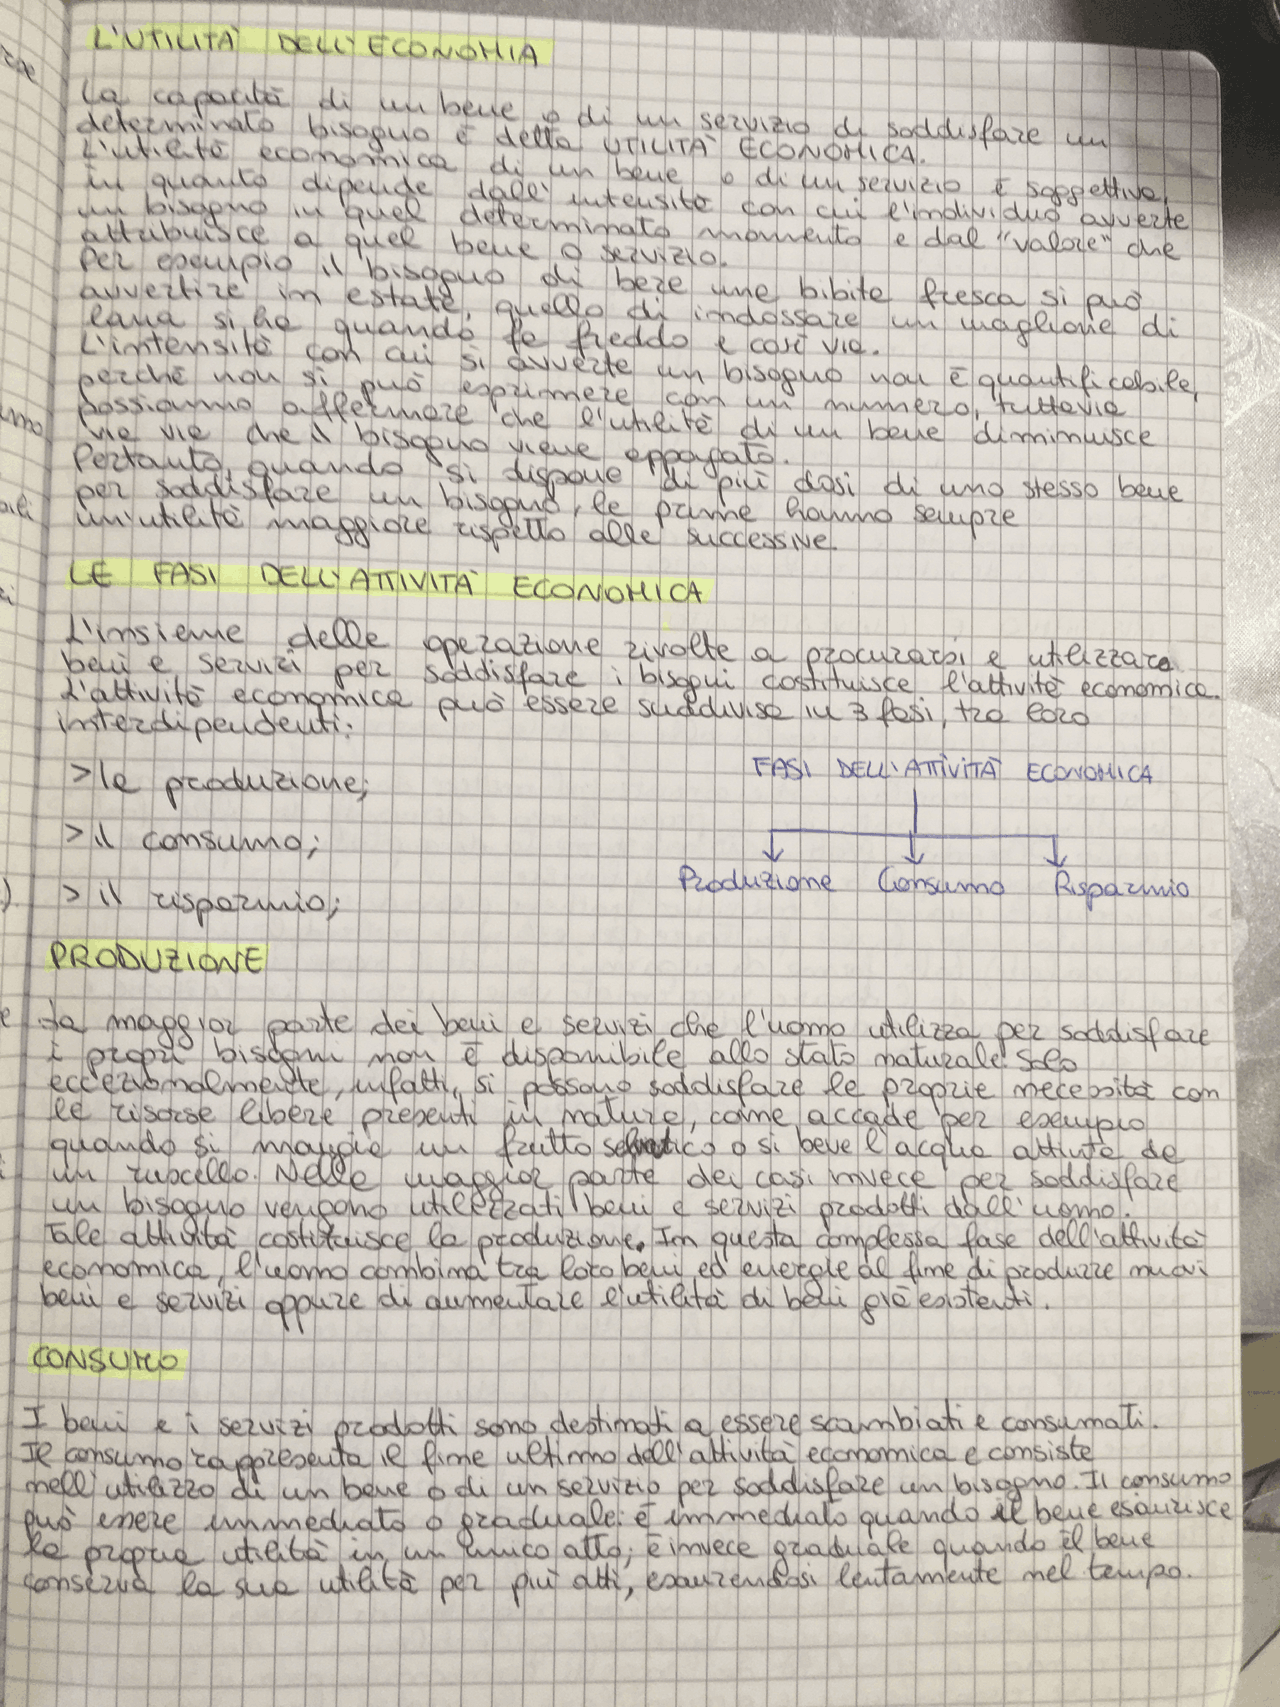 L'UTILITÀ DELL'ECONOMIA
La capacità di un bene o di un servizio di soddisfare un
determinato bisogno è detta UTILITÀ ECONOMICA.
L'utilità economica di un bene o di un servizio è soggettiva,
in quanto dipende dall'intensità con cui l'individuo avverte
un bisogno in quel determinato momento e dal "valore" che
attribuisce a quel bene o servizio.
Per esempio il bisogno di bere una bibita fresca si può
avvertire in estate, quello di indossare un maglione di
lana si ha quando fa freddo e così via.
L'intensità con cui si avverte un bisogno non è quantificabile,
perché non si può esprimere con un numero, tuttavia
possiamo affermare che l'utilità di un bene diminuisce
via via che il bisogno viene appagato.
Pertanto, quando si dispone di più dosi di uno stesso bene
per soddisfare un bisogno, le prime hanno sempre
un'utilità maggiore rispetto alle successive.
LE FASI DELL'ATTIVITÀ ECONOMICA
L'insieme delle operazione rivolte a procurarsi e utilizzare
beni e servizi per soddisfare i bisogni costituisce l'attività economica.
L'attività economica può essere suddivisa in 3 fasi, tra loro
interdipendenti:
>la produzione;
>il consumo;
>il risparmio;
FASI DELL'ATTIVITÀ ECONOMICA
Produzione Consumo Risparmio
PRODUZIONE
La maggior parte dei beni e servizi che l'uomo utilizza per soddisfare
i propri bisogni non è disponibile allo stato naturale. Solo
eccezionalmente, infatti, si possono soddisfare le proprie necessità con
le risorse libere presenti in natura, come accade per esempio
quando si mangia un frutto selvatico o si beve l'acqua attinta da
un ruscello. Nella maggior parte dei casi invece per soddisfare
un bisogno vengono utilizzati beni e servizi prodotti dall'uomo.
Tale attività costituisce la produzione. In questa complessa fase dell'attività
economica, l'uomo combina tra loro beni ed energie al fine di produrre nuovi
beni e servizi oppure di aumentare l'utilità di beni già esistenti.
CONSUMO
I beni e i servizi prodotti sono destinati a essere scambiati e consumati.
Il consumo rappresenta il fine ultimo dell'attività economica e consiste
nell'utilizzo di un bene o di un servizio per soddisfare un bisogno. Il consumo
può essere immediato o graduale: è immediato quando il bene esaurisce
la propria utilità in un unico atto; è invece graduale quando il bene
conserva la sua utilità per più atti, esaurendosi lentamente nel tempo.